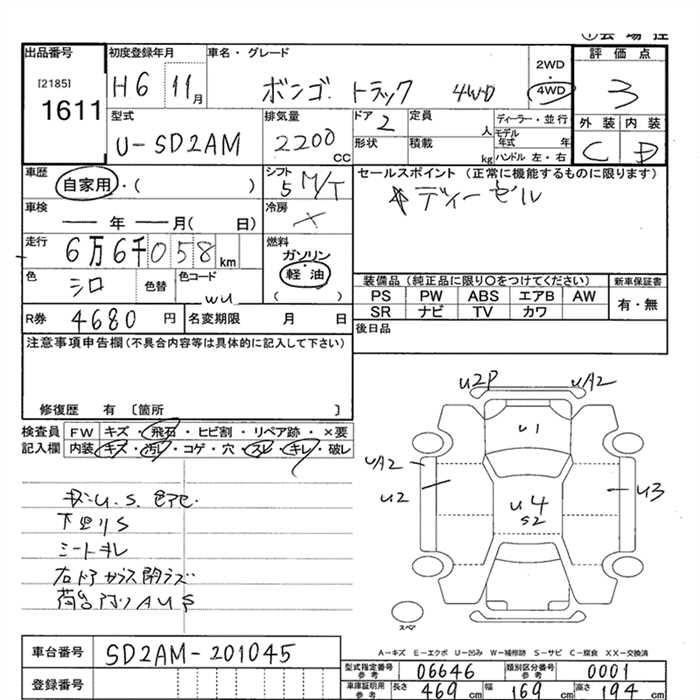 出品番号
[2185]
1611
初度登録年月
H6 11月
車名・グレード
ボンゴ トラック 4WD
2WD
4WD
評価点
3
外装 内装
C D
型式
U-SD2AM
排気量
2200
CC
ドア
2
形状
定員
人
積載
kg
ディーラー・並行
モデル
年式 年
ハンドル 左・右
車歴
自家用・( )
シフト
5 M/T
セールスポイント (正常に機能するものに限ります)
ディーゼル
車検
年 月( 日)
冷房
×
走行
6万6千058km
燃料
ガソリン
軽・油
( )
色
シロ
色替
色コード
WU
装備品 (純正品に限り○をつけてください)
新車保証書
PS PW ABS エアB AW
有・無
SR ナビ TV カワ
R券 4680 円
名変期限 月 日
後日品
注意事項申告欄(不具合内容等は具体的に記入して下さい)
修復歴 有 〔箇所 〕
検査員 FW キズ・飛石・ヒビ割・リペア跡・×要
記入欄 内装 キズ・汚レ・コゲ・穴・スレ・キレ・破レ
U.S.色アセ
下回リS
シートキレ
右ドアガラス閉ラズ
荷台 AUS
U2P UA2
U1
UA2
U2
U4
S2
U3
スペア
A-キズ E-エクボ U-凹み W-補修跡 S-サビ C-腐食 XX-交換済
車台番号 SD2AM-201045
登録番号
型式指定番号
参考
06646
類別区分番号
参考
0001
車庫証明用
参考
長さ 469 cm 幅 169 cm 高さ 194 cm